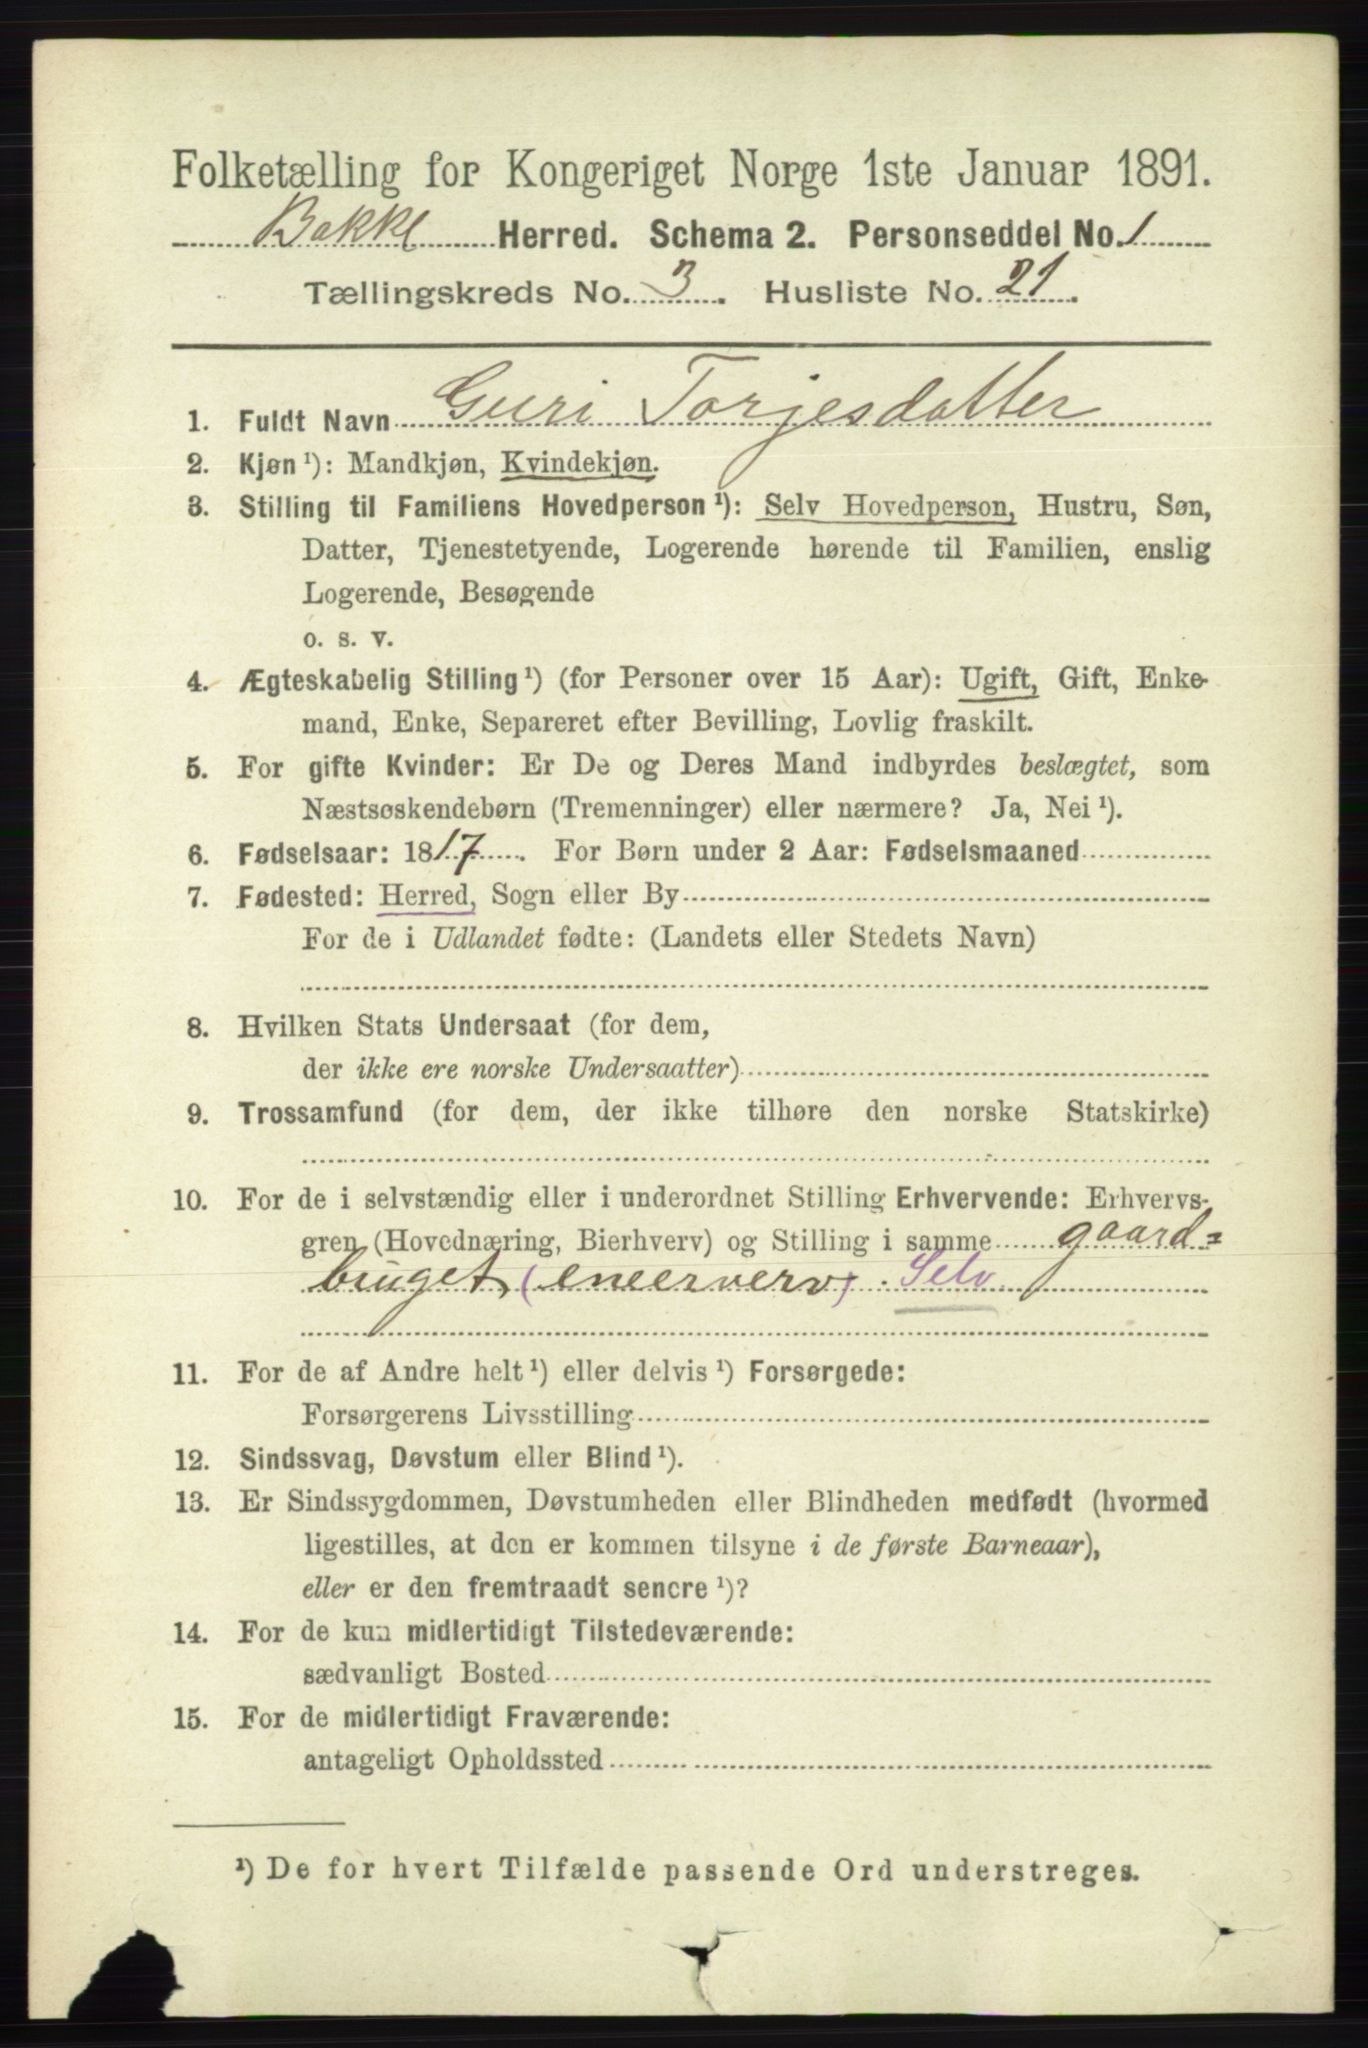 Folketælling for Kongeriget Norge 1ste Januar 1891.
Bakke Herred. Schema 2. Personseddel No. 1
Tællingskreds No. 3. Husliste No. 21.
1. Fuldt Navn Guri Torjesdatter
2. Kjøn ¹): Mandkjøn, Kvindekjøn.
3. Stilling til Familiens Hovedperson ¹): Selv Hovedperson, Hustru, Søn,
Datter, Tjenestetyende, Logerende hørende til Familien, enslig
Logerende, Besøgende
o. s. v.
4. Ægteskabelig Stilling ¹) (for Personer over 15 Aar): Ugift, Gift, Enke-
mand, Enke, Separeret efter Bevilling, Lovlig fraskilt.
5. For gifte Kvinder: Er De og Deres Mand indbyrdes beslægtet, som
Næstsøskendebørn (Tremenninger) eller nærmere? Ja, Nei ¹).
6. Fødselsaar: 1817. For Børn under 2 Aar: Fødselsmaaned
7. Fødested: Herred, Sogn eller By
For de i Udlandet fødte: (Landets eller Stedets Navn)
8. Hvilken Stats Undersaat (for dem,
der ikke ere norske Undersaatter)
9. Trossamfund (for dem, der ikke tilhøre den norske Statskirke)
10. For de i selvstændig eller i underordnet Stilling Erhvervende: Erhvervs-
gren (Hovednæring, Bierhverv) og Stilling i samme gaard=
bruget (eneerverv). Selv
11. For de af Andre helt ¹) eller delvis ¹) Forsørgede:
Forsørgerens Livsstilling
12. Sindssvag, Døvstum eller Blind ¹).
13. Er Sindssygdommen, Døvstumheden eller Blindheden medfødt (hvormed
ligestilles, at den er kommen tilsyne i de første Barneaar),
eller er den fremtraadt senere ¹)?
14. For de kun midlertidigt Tilstedeværende:
sædvanligt Bosted
15. For de midlertidigt Fraværende:
antageligt Opholdssted
¹) De for hvert Tilfælde passende Ord understreges.